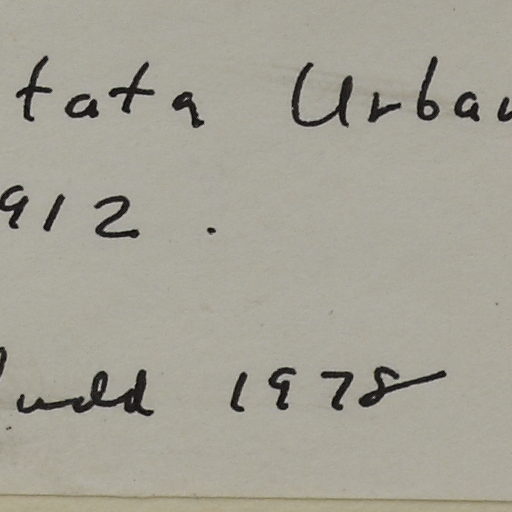 tata Urban
912.
Judd 1978